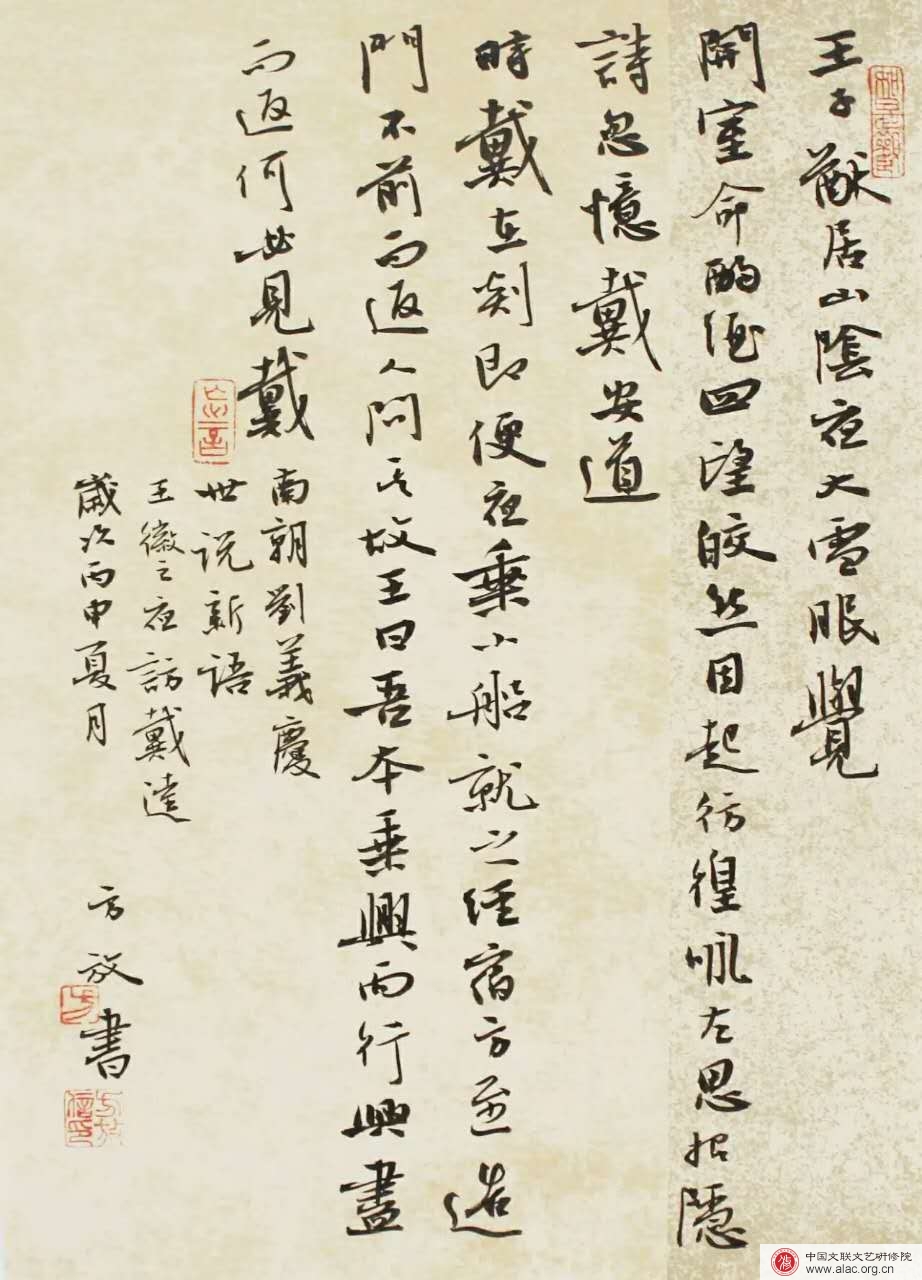 王子猷居山陰夜大雪眠覺
開室命酌酒四望皎然因起彷徨咏左思招隱
詩忽憶戴安道
時戴在剡即便夜乗小船就之經宿方至造
門不前而返人問其故王曰吾本乗興而行興盡
而返何必見戴
南朝劉義慶
世说新语
王徽之夜訪戴逵
歲次丙申夏月
方放書
中国文联文艺研修院
www.alac.org.cn